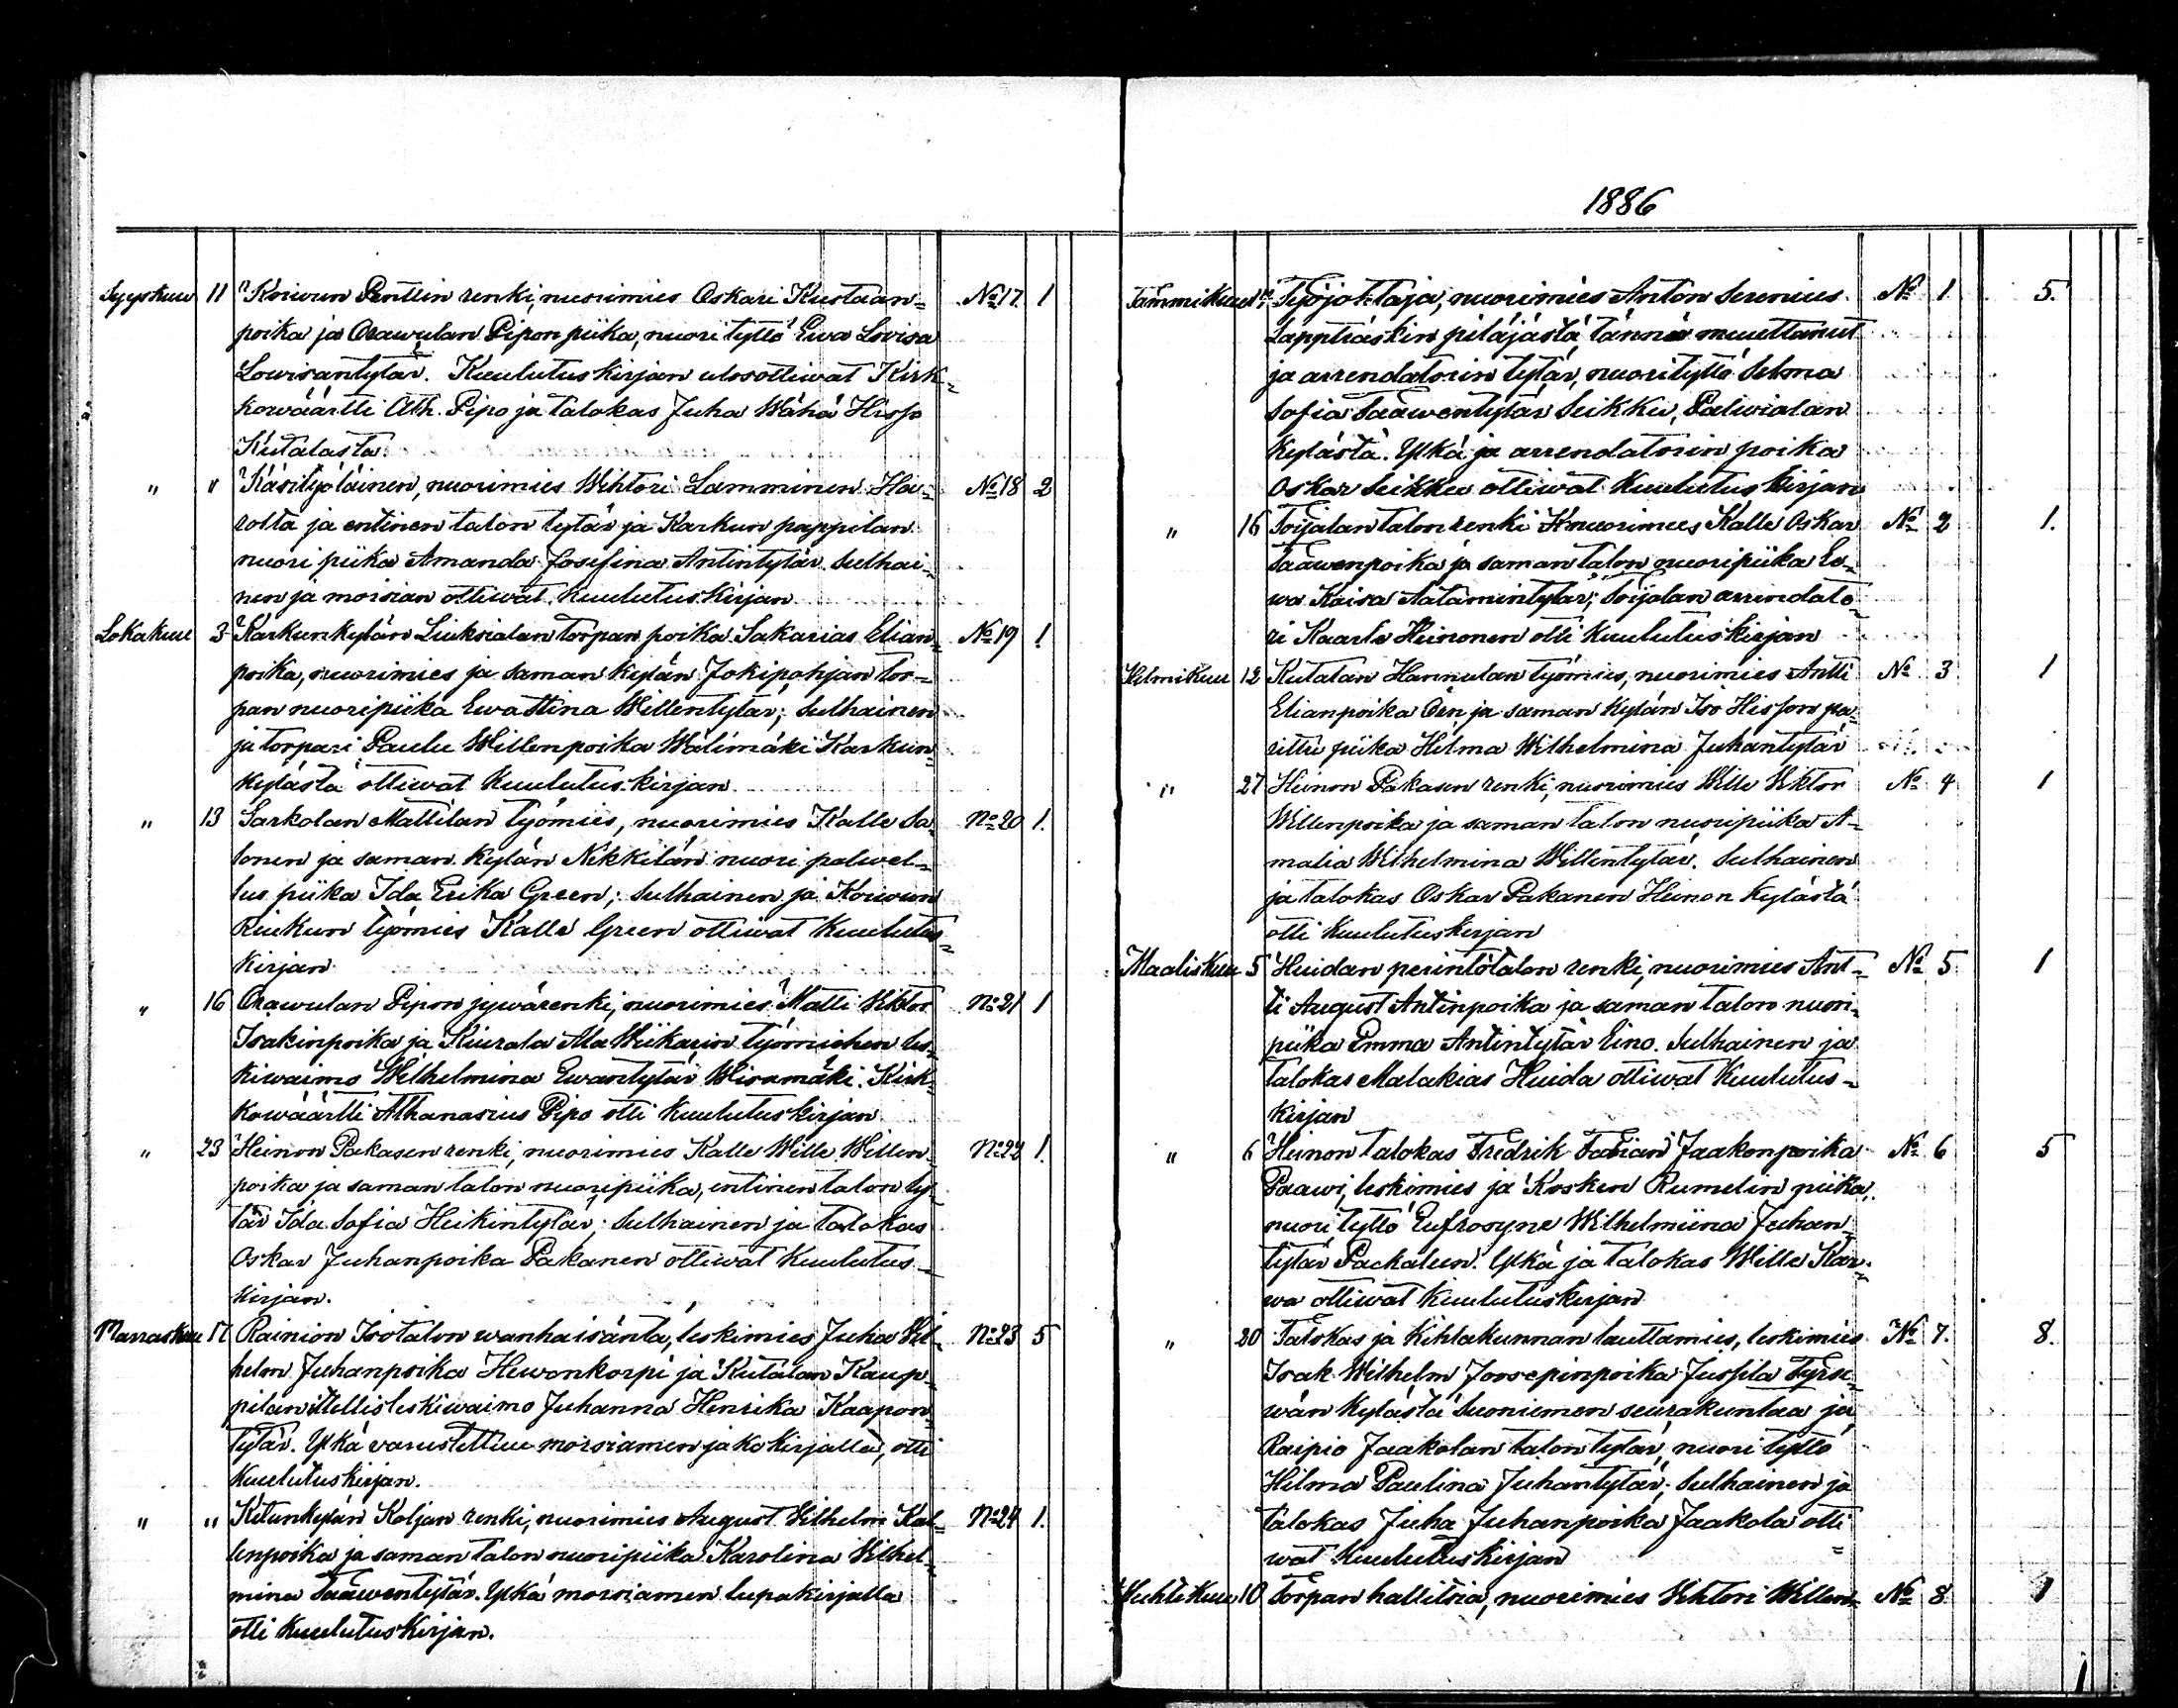 Syyskuu 11 Koivun Penttin renki, nuorimies Oskari Kustaan- No 17 1
poika ja Orawulan Pipon piika, nuori tyttö Ewa Lovisa
Lowisantytär. Kuulutuskirjan ulosottiwat Kirk-
kowäärtti Ath. Pipo ja talokas Juha Wähä Hisso
Kutalasta.
" " Käsityöläinen, nuorimies Wihtori Lamminen Ha-
rolta ja entinen talon tytär ja Karkun pappilan No 18 2
nuori piika Amanda Josefina Antintytär. Sulhai-
nen ja morsian ottiwat Kuulutuskirjan
Lokakuu 3 Karkunkylän Liuksialan torpan poika Sakarias Elian- No 19 1
poika, nuorimies ja saman kylän Jokipohjan tor-
pan nuoripiika Ewa Stina Willentytär; Sulhainen
ja torpari Paulu Willenpoika Wälimäki Karkun-
kylästä ottiwat Kuulutuskirjan
" 13 Sarkolan Mattilan työmies, nuorimies Kalle Sa- No 20 1.
lonen ja saman kylän Nekkilän nuori palwel-
lus piika Ida Erika Green; Sulhainen ja Kouwun
Riukun työmies Kalle Green ottiwat Kuulutus-
kirjan
" 16 Orawulan Pipon jywärenki, nuorimies Matti Viktor No 21 1
Isakinpoika ja Kiurala Ala Wiikarin työmiehen les-
kiwaimo Wilhelmina Ewantytär Wiramäki. Kirk-
kowäärtti Athanasius Pipo otti Kuulutuskirjan
" 23 Heinon Pakasen renki, nuorimies Kalle Wille Willen- No 22 1.
poika ja saman talon nuoripiika, entinen talon ty-
tär Ida Sofia Heikintytär; Sulhainen ja talokas
Oskar Juhanpoika Pakanen ottiwat Kuulutus-
kirjan.
Marraskuu 17 Rainion Isotalon wanhaisäntä, leskimies Juha Wil- No 23 5
helm Juhanpoika Hewonkorpi ja Kutalan Kaup-
pilan itellisleskiwaimo Juhanna Henrika Kaapon-
tytär. Ylkä varustettuu morsiamen jakokirjalla, otti
Kuulutuskirjan.
" " Kiturikylän Koljan renki, nuorimies August Wilhelm Kal- No 24 1.
lenpoika ja saman talon nuoripiika Karolina Wilhel-
mina Taawentytär. Ylkä morsiamen lupakirjalla
otti Kuulutuskirjan.
1886
Tammikuu Työjohtaja, nuorimies Anton Serenius No 1 5.
Lappträskin pitäjästä tänne muuttanut
ja arrendatorin tytär, nuorityttö Selma
Sofia Taawentytär Seikku, Palwialan
kylästä. Ylkä ja arrendatorin poika
Oskar Seikku ottiwat Kuulutuskirjan
" 16 Toijalan talon renki nuorimies Kalle Oskar No 2 1.
Taawenpoika ja saman talon nuoripiika Ee-
wa Kaisa Aatamintytär; Toijalan arrendato-
ri Kaarle Heinonen otti Kuulutuskirjan
Helmikuu 12 Kutalan Hannulan työmies, nuorimies Antti No 3 1
Elianpoika Öen ja saman kylän Iso Hisson pa-
rittu piika Hilma Wilhelmina Juhantytär
" 27 Heinon Pakasen renki, nuorimies Wille Viktor No 4 1
Willenpoika ja saman talon nuoripiika A-
malia Wilhelmina Willentytär. Sulhainen
ja talokas Oskar Pakanen Heinon kylästä
otti Kuulutuskirjan
Maaliskuu 5 Huidan perintötalon renki, nuorimies Ant- No 5 1
ti August Antinpoika ja saman talon nuori
piika Emma Antintytär Eino. Sulhainen ja
talokas Malakias Huida ottiwat Kuulutus-
kirjan
" 6 Heinon talokas Fredrik Fabian Jaakonpoika No 6 5
Paawi, leskimies ja Kosken Rumelin piika,
nuori tyttö Eufrosyne Wilhelmiina Juhan
tytär Packalen. Ylkä ja talokas Wille Kar-
wa ottiwat Kuulutuskirjan
" 20 Talokas ja Kihlakunnan lauttamies, leskimies No 7. 8.
Isak Wilhelm Joosepinpoika Jussila Tyrse-
wän kylästä Suoniemen seurakuntaa ja
Raipio Jaakolan talon tytär, nuori tyttö
Hilma Paulina Juhantytär; Sulhainen ja
talokas Juha Juhanpoika Jaakola otti=
wat Kuulutuskirjan
Huhtikuu 10 Torpan hallitsia, nuorimies Vihtori Willen- No 8 1